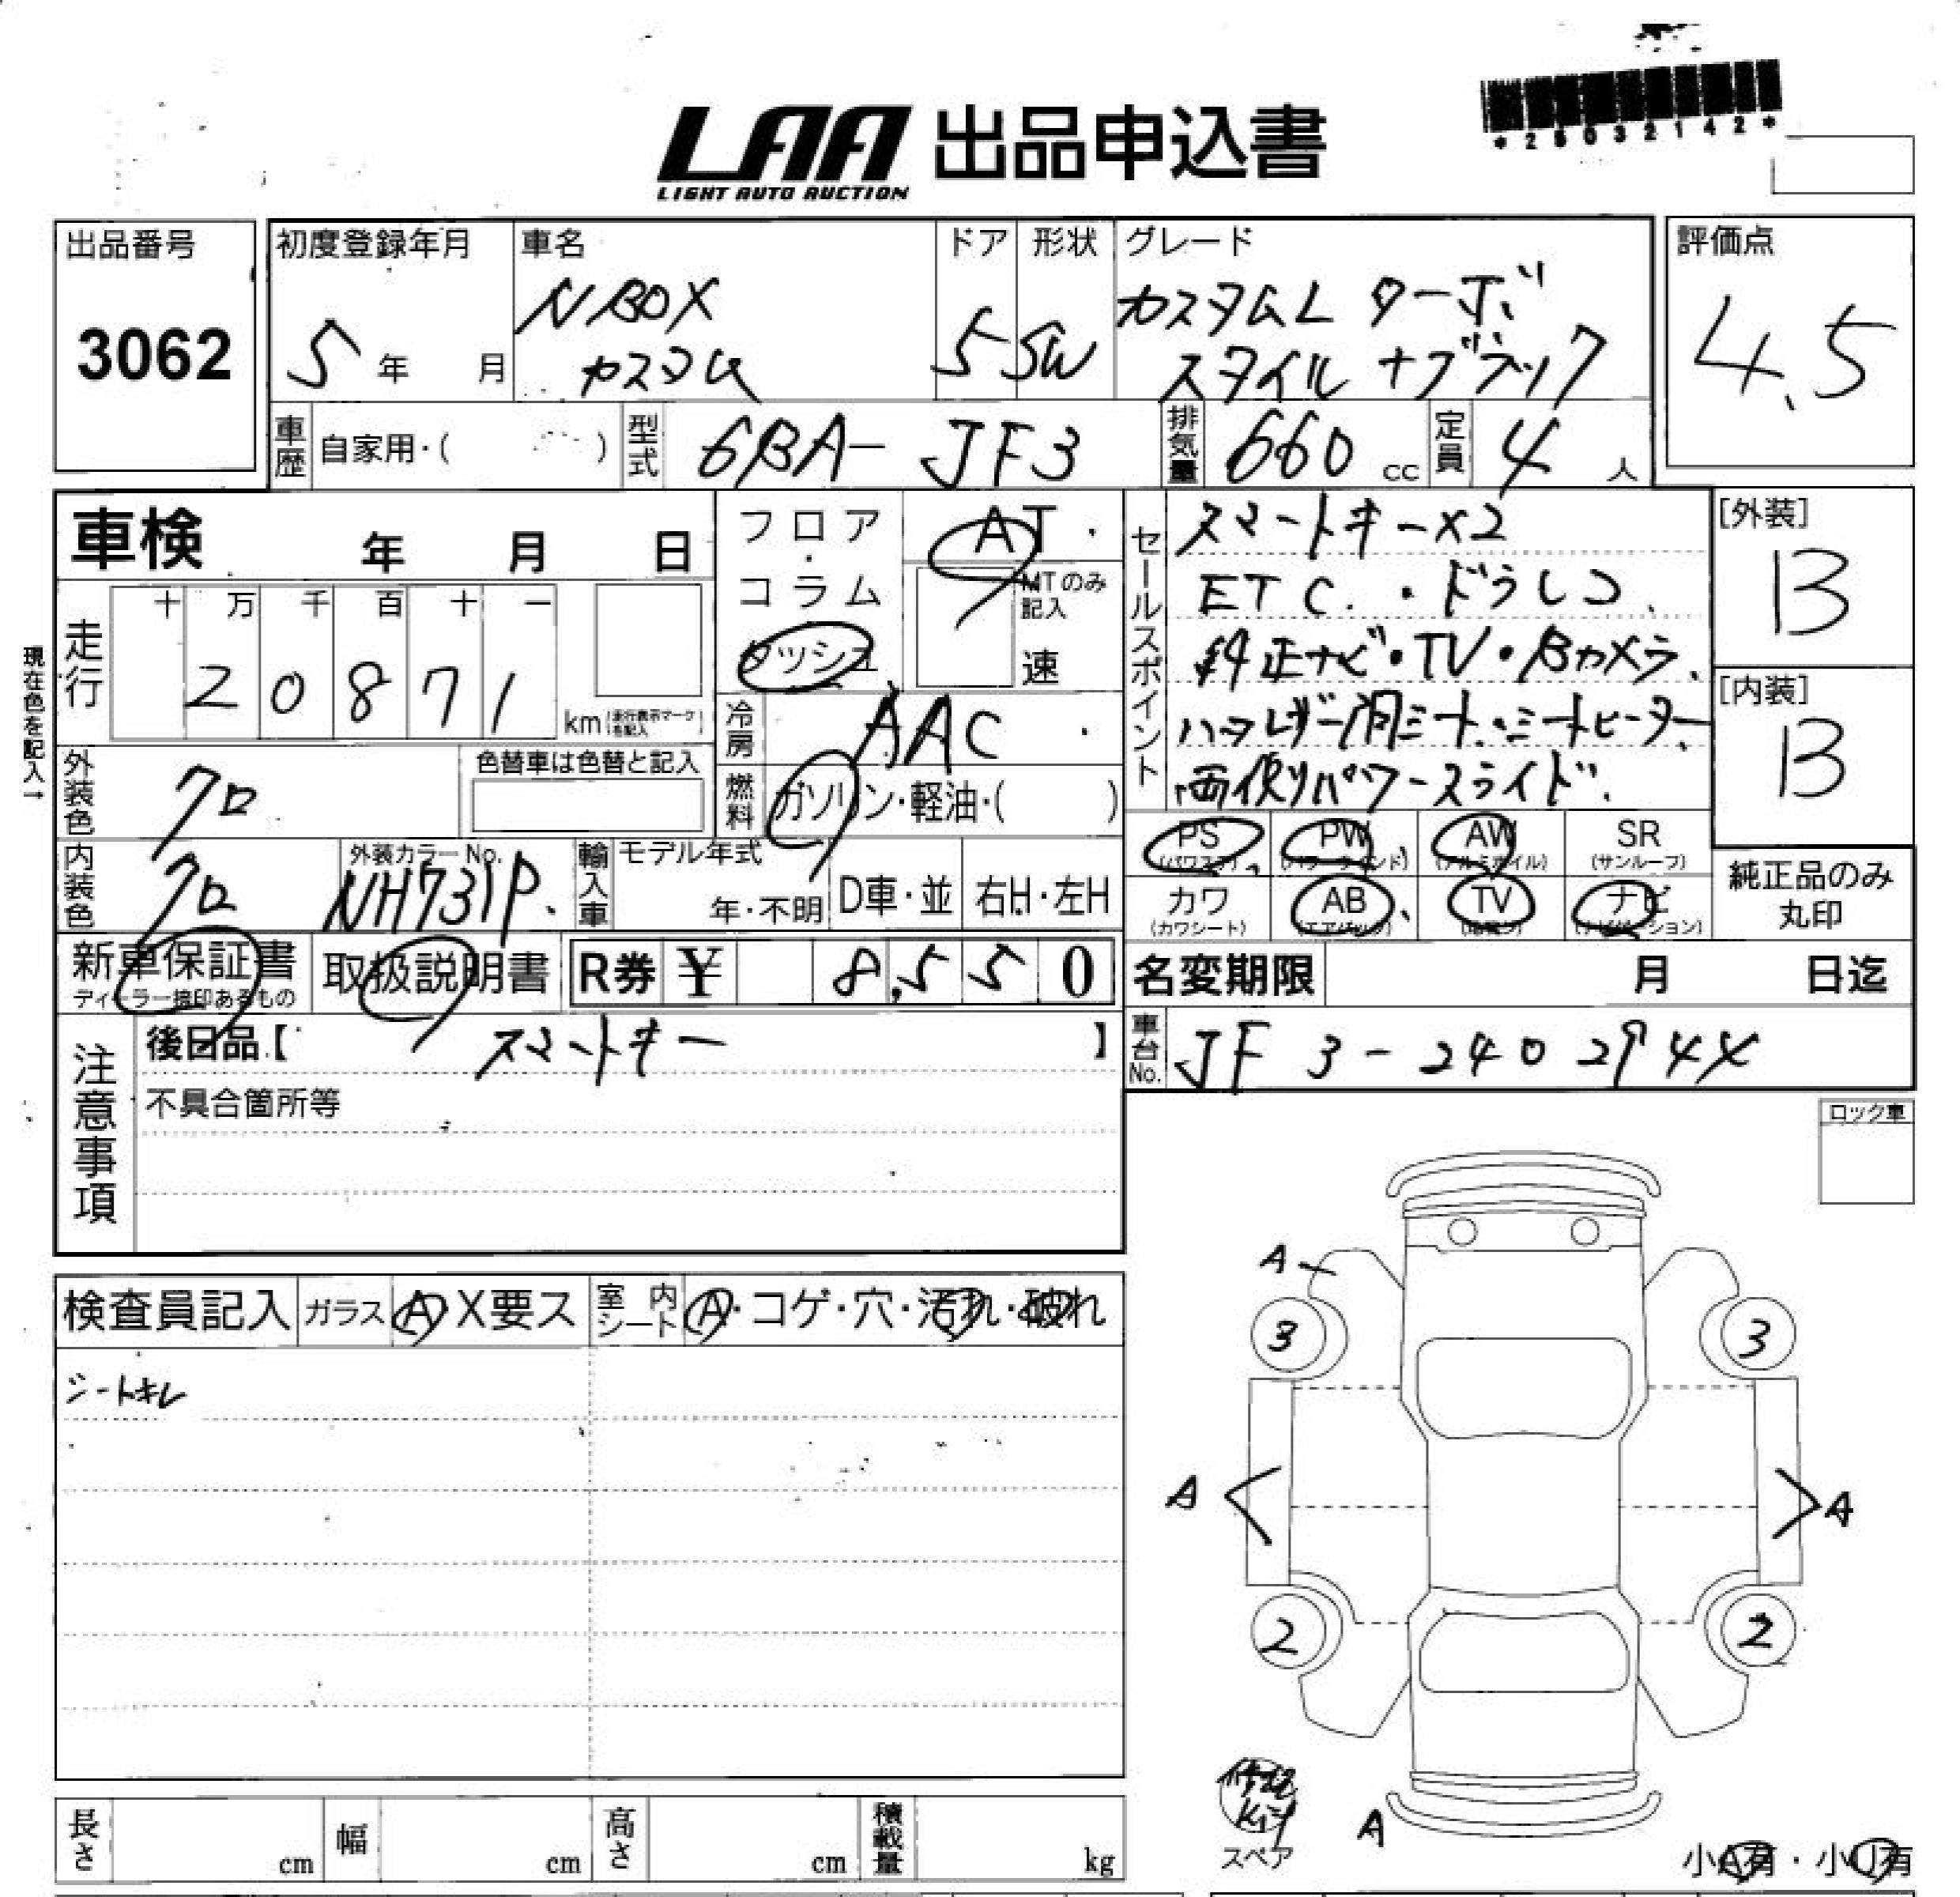 *25032142*
LAA 出品申込書
LIGHT AUTO AUCTION
出品番号
3062
初度登録年月
5年 月
車名
N BOX
カスタム
ドア
5
形状
SW
グレード
カスタムL ターボ
スタイル+ブラック
評価点
4.5
車歴
自家用・( )
型式
6BA- JF3
排気量
660 cc
定員
4 人
車検 年 月 日
フロア・コラム
ダッシュ
AT・
MTのみ記入
速
セールスポイント
スマートキー×2
ETC.・ドラレコ.
純正ナビ・TV・Bカメラ.
ハーフレザー調シート.シートヒーター
両側パワースライド.
[外装]
B
[内装]
B
現在色を記入→
走行
十 万 千 百 十 一
2 0 8 7 1
km (走行表示マークを記入)
冷房
AAC ・
外装色
クロ
色替車は色替と記入
燃料
ガソリン・軽油・( )
PS (パワステ)
PW (パワーウインド)
AW (アルミホイル)
SR (サンルーフ)
カワ (カワシート)
AB (エアバック)
TV
ナビ (ナビゲーション)
純正品のみ
丸印
内装色
クロ
外装カラーNo.
NH731P.
輸入車
モデル年式
年・不明
D車・並
右H・左H
新車保証書
ディーラー捺印あるもの
取扱説明書
R券 ¥ 8,550
名変期限 月 日迄
車台No.
JF3-2402944
注意事項
後日品【 スマートキー 】
不具合箇所等
ロック車
検査員記入
ガラス A X要ス
室内シート A・コゲ・穴・汚れ・破れ
シートキレ
A
3
3
A
A
2
2
A
修理
Kit
スペア
小A有・小U有
長さ cm
幅 cm
高さ cm
積載量 kg